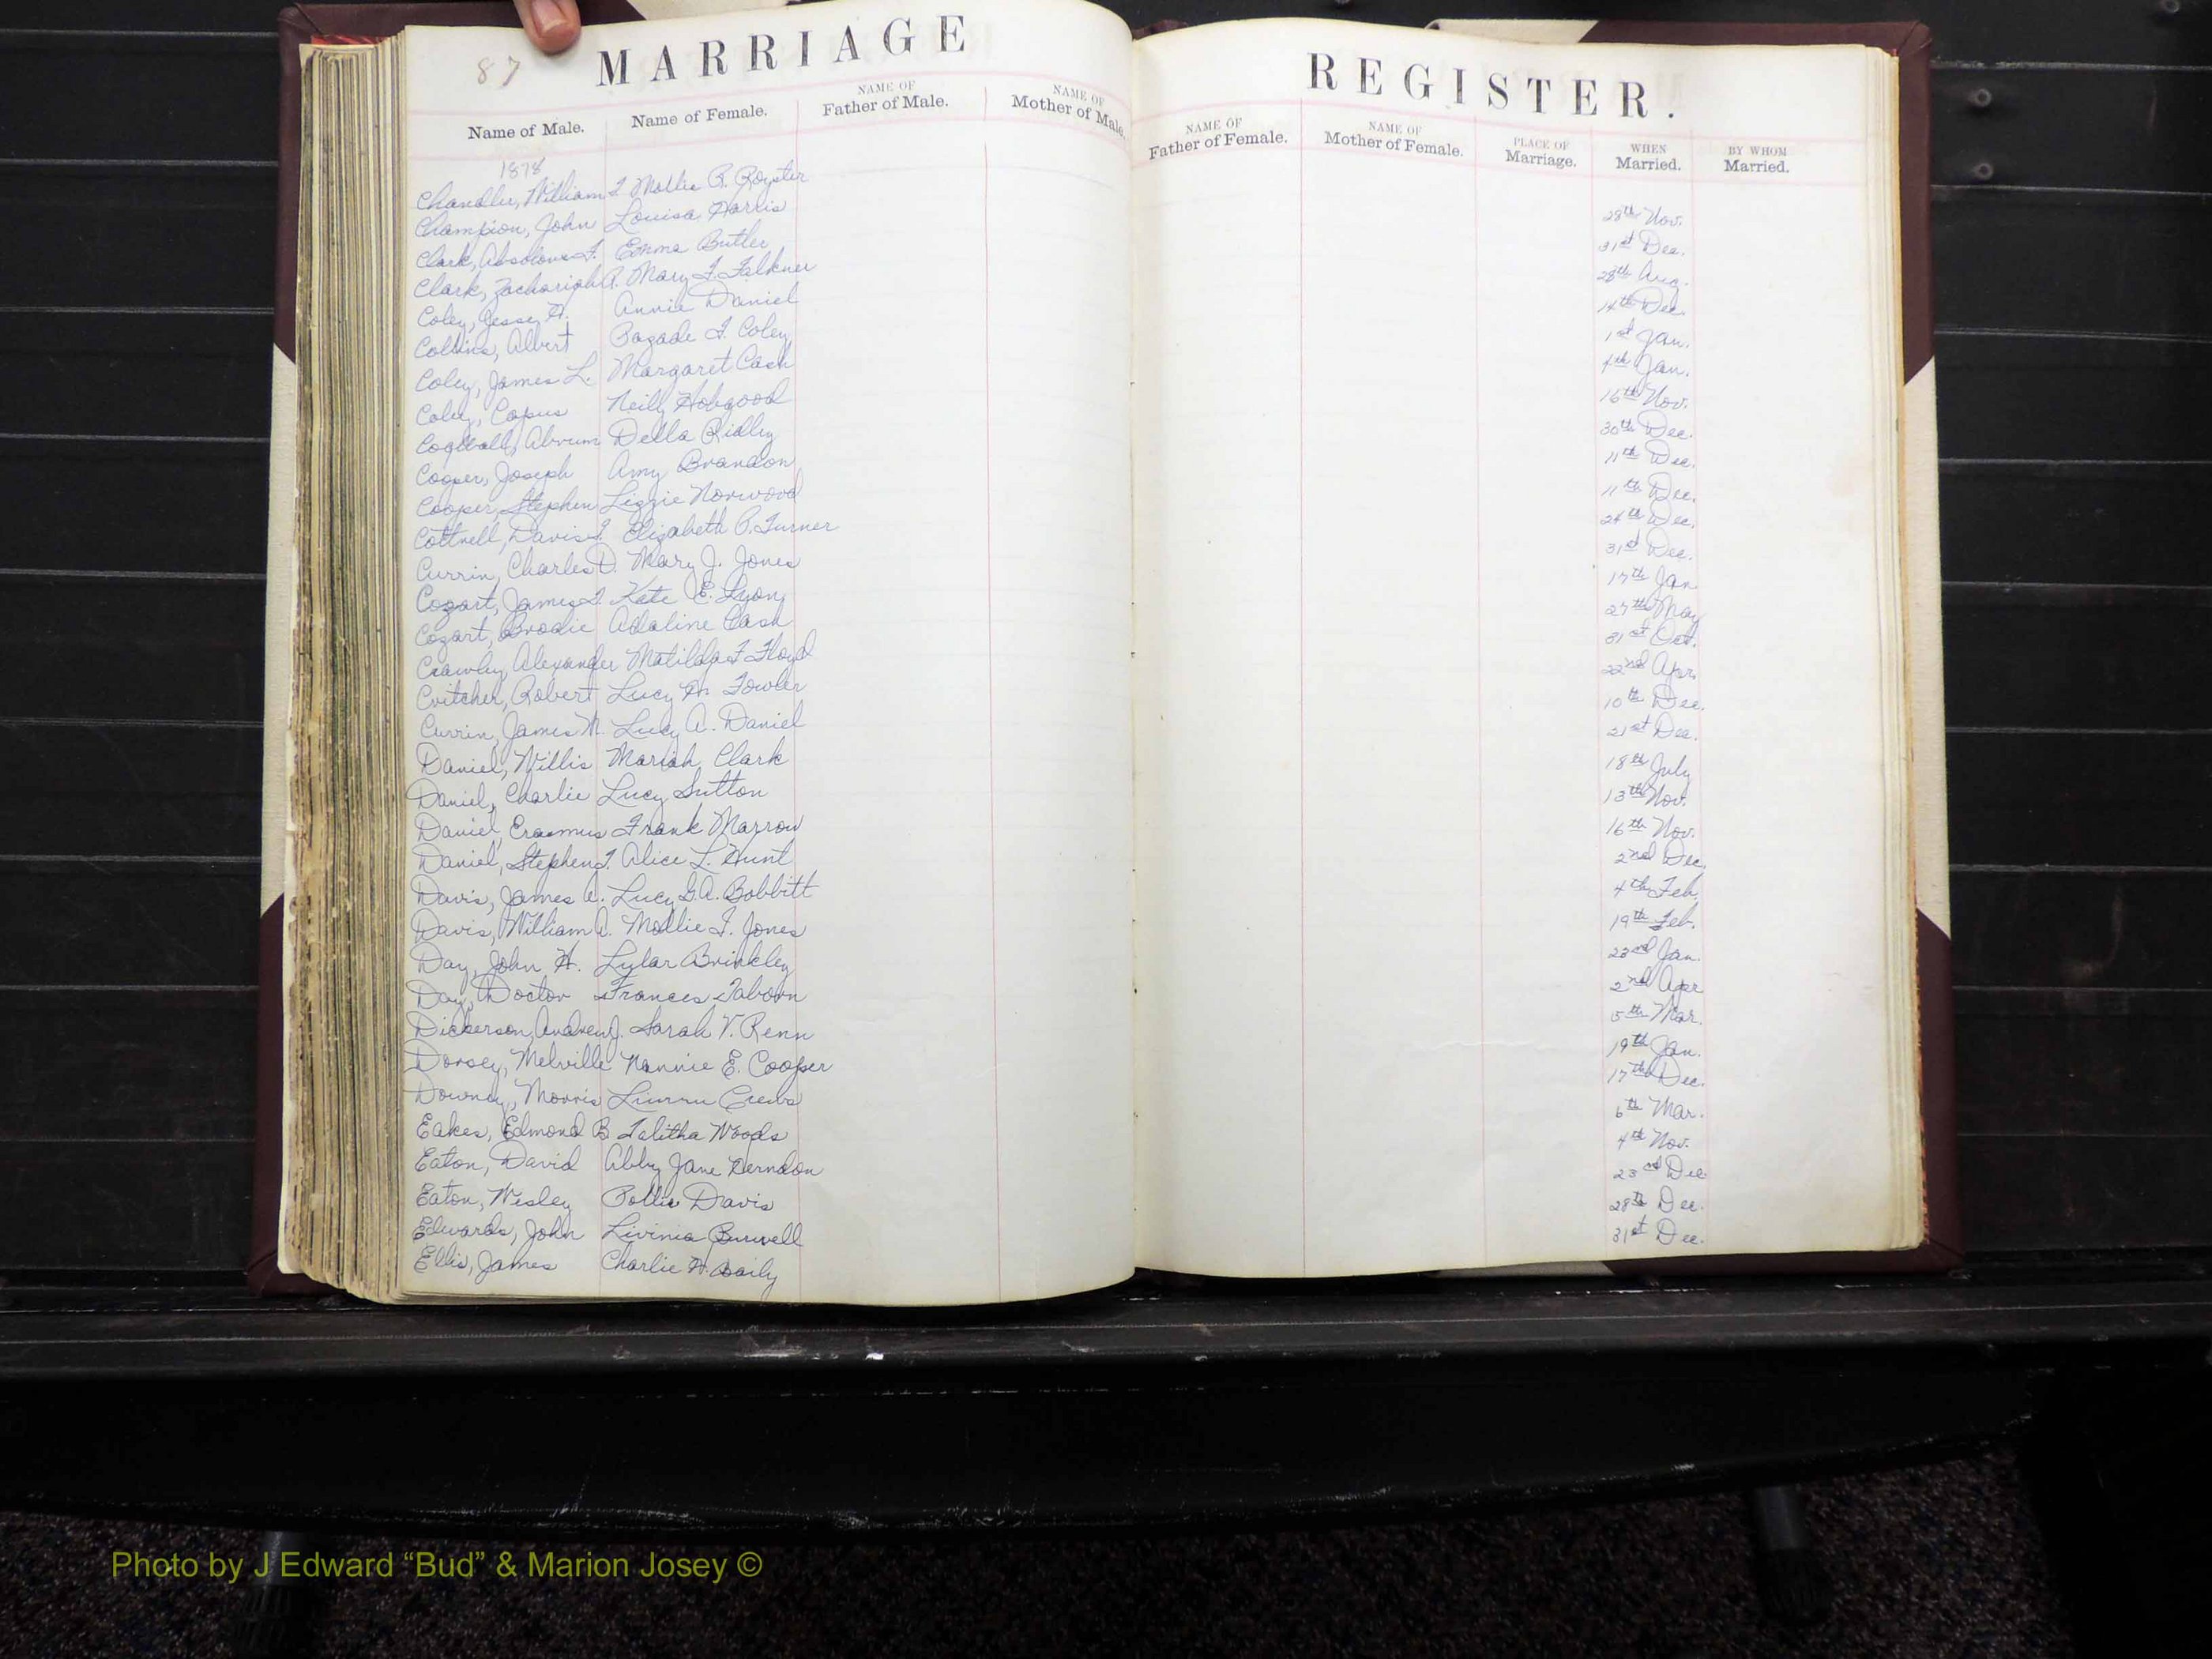 87
MARRIAGE
Name of Male. Name of Female. NAME OF Father of Male. NAME OF Mother of Male.
1878
Chandler, William T. Mollie R. Royster
Champion, John Louisa Harris
Clark, Absolom F. Emma Butler
Clark, Zachariah A. Mary F. Falkner
Coley, Jesse H. Annie Daniel
Collins, Albert F. Coley
Coley, James L. Margaret Cash
Coley, Copus Neily Hobgood
Abrum Della Ridley
Cooper, Joseph Amy Brandon
Cooper, Stephen Lizzie Norwood
Cottrell, Davis T. Elizabeth P. Turner
Currin, Charles D. Mary J. Jones
Cozart, James T. Kate E. Lyon
Cozart, Brodie Adaline Cash
Crawley, Alexander Matilda F Floyd
Critcher, Robert Lucy M. Fowler
Currin, James M. Lucy A. Daniel
Daniel, Willis Mariah Clark
Daniel, Charlie Lucy Sutton
Daniel, Erasmus Frank Marrow
Daniel, Stephen T. Alice L. Hunt
Davis, James A. Lucy G.A. Bobbitt
Davis, William A. Mollie F. Jones
Day, John H. Lular Brinkley
Day, Doctor Frances Taborn
Dickerson, Andrew J. Sarah V. Renn
Dorsey, Melville Nannie E. Cooper
Downey, Morris Crews
Eakes, Edmond B. Talitha Woods
Eaton, David Abby Jane Herndon
Eaton, Wesley Pollie Davis
Edwards, John Livinia Burwell
Ellis, James Charlie H. Baily
REGISTER.
NAME OF Father of Female. NAME OF Mother of Female. PLACE OF Marriage. WHEN Married. BY WHOM Married.
28th Nov.
31st Dec.
28th Aug.
14th Dec.
1st Jan.
4th Jan.
16th Nov.
30th Dec.
11th Dec.
11th Dec.
24th Dec.
31st Dec.
17th Jan
27th May
31st Oct.
22nd Apr.
10th Dec.
21st Dec.
18th July
13th Nov.
16th Nov.
2nd Dec.
4th Feb.
19th Feb.
23rd Jan.
2nd Apr
5th Mar.
19th Jan.
17th Dec.
6th Mar.
4th Nov.
23rd Dec
28th Dec.
31st Dec.
Photo by J Edward “Bud” & Marion Josey ©